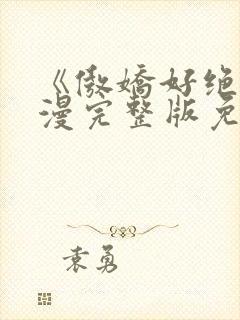 《傲娇好绝
漫完整版免
袁勇